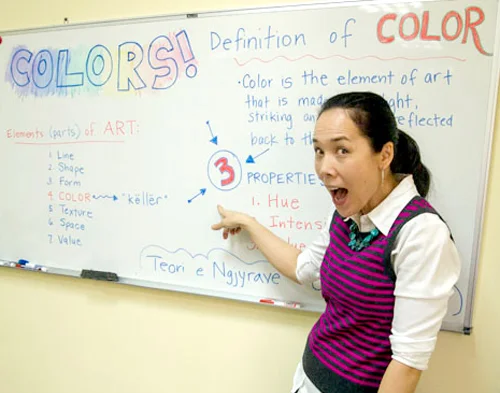 COLORS!
Definition of COLOR
• Color is the element of art
that is made
striking reflected
back to
Elements (parts) of ART:
1 Line
2 Shape
3 Form
4 COLOR → "këllër"
5 Texture
6 Space
7 Value
3 PROPERTIES
1. Hue
Teori e Ngjyrave